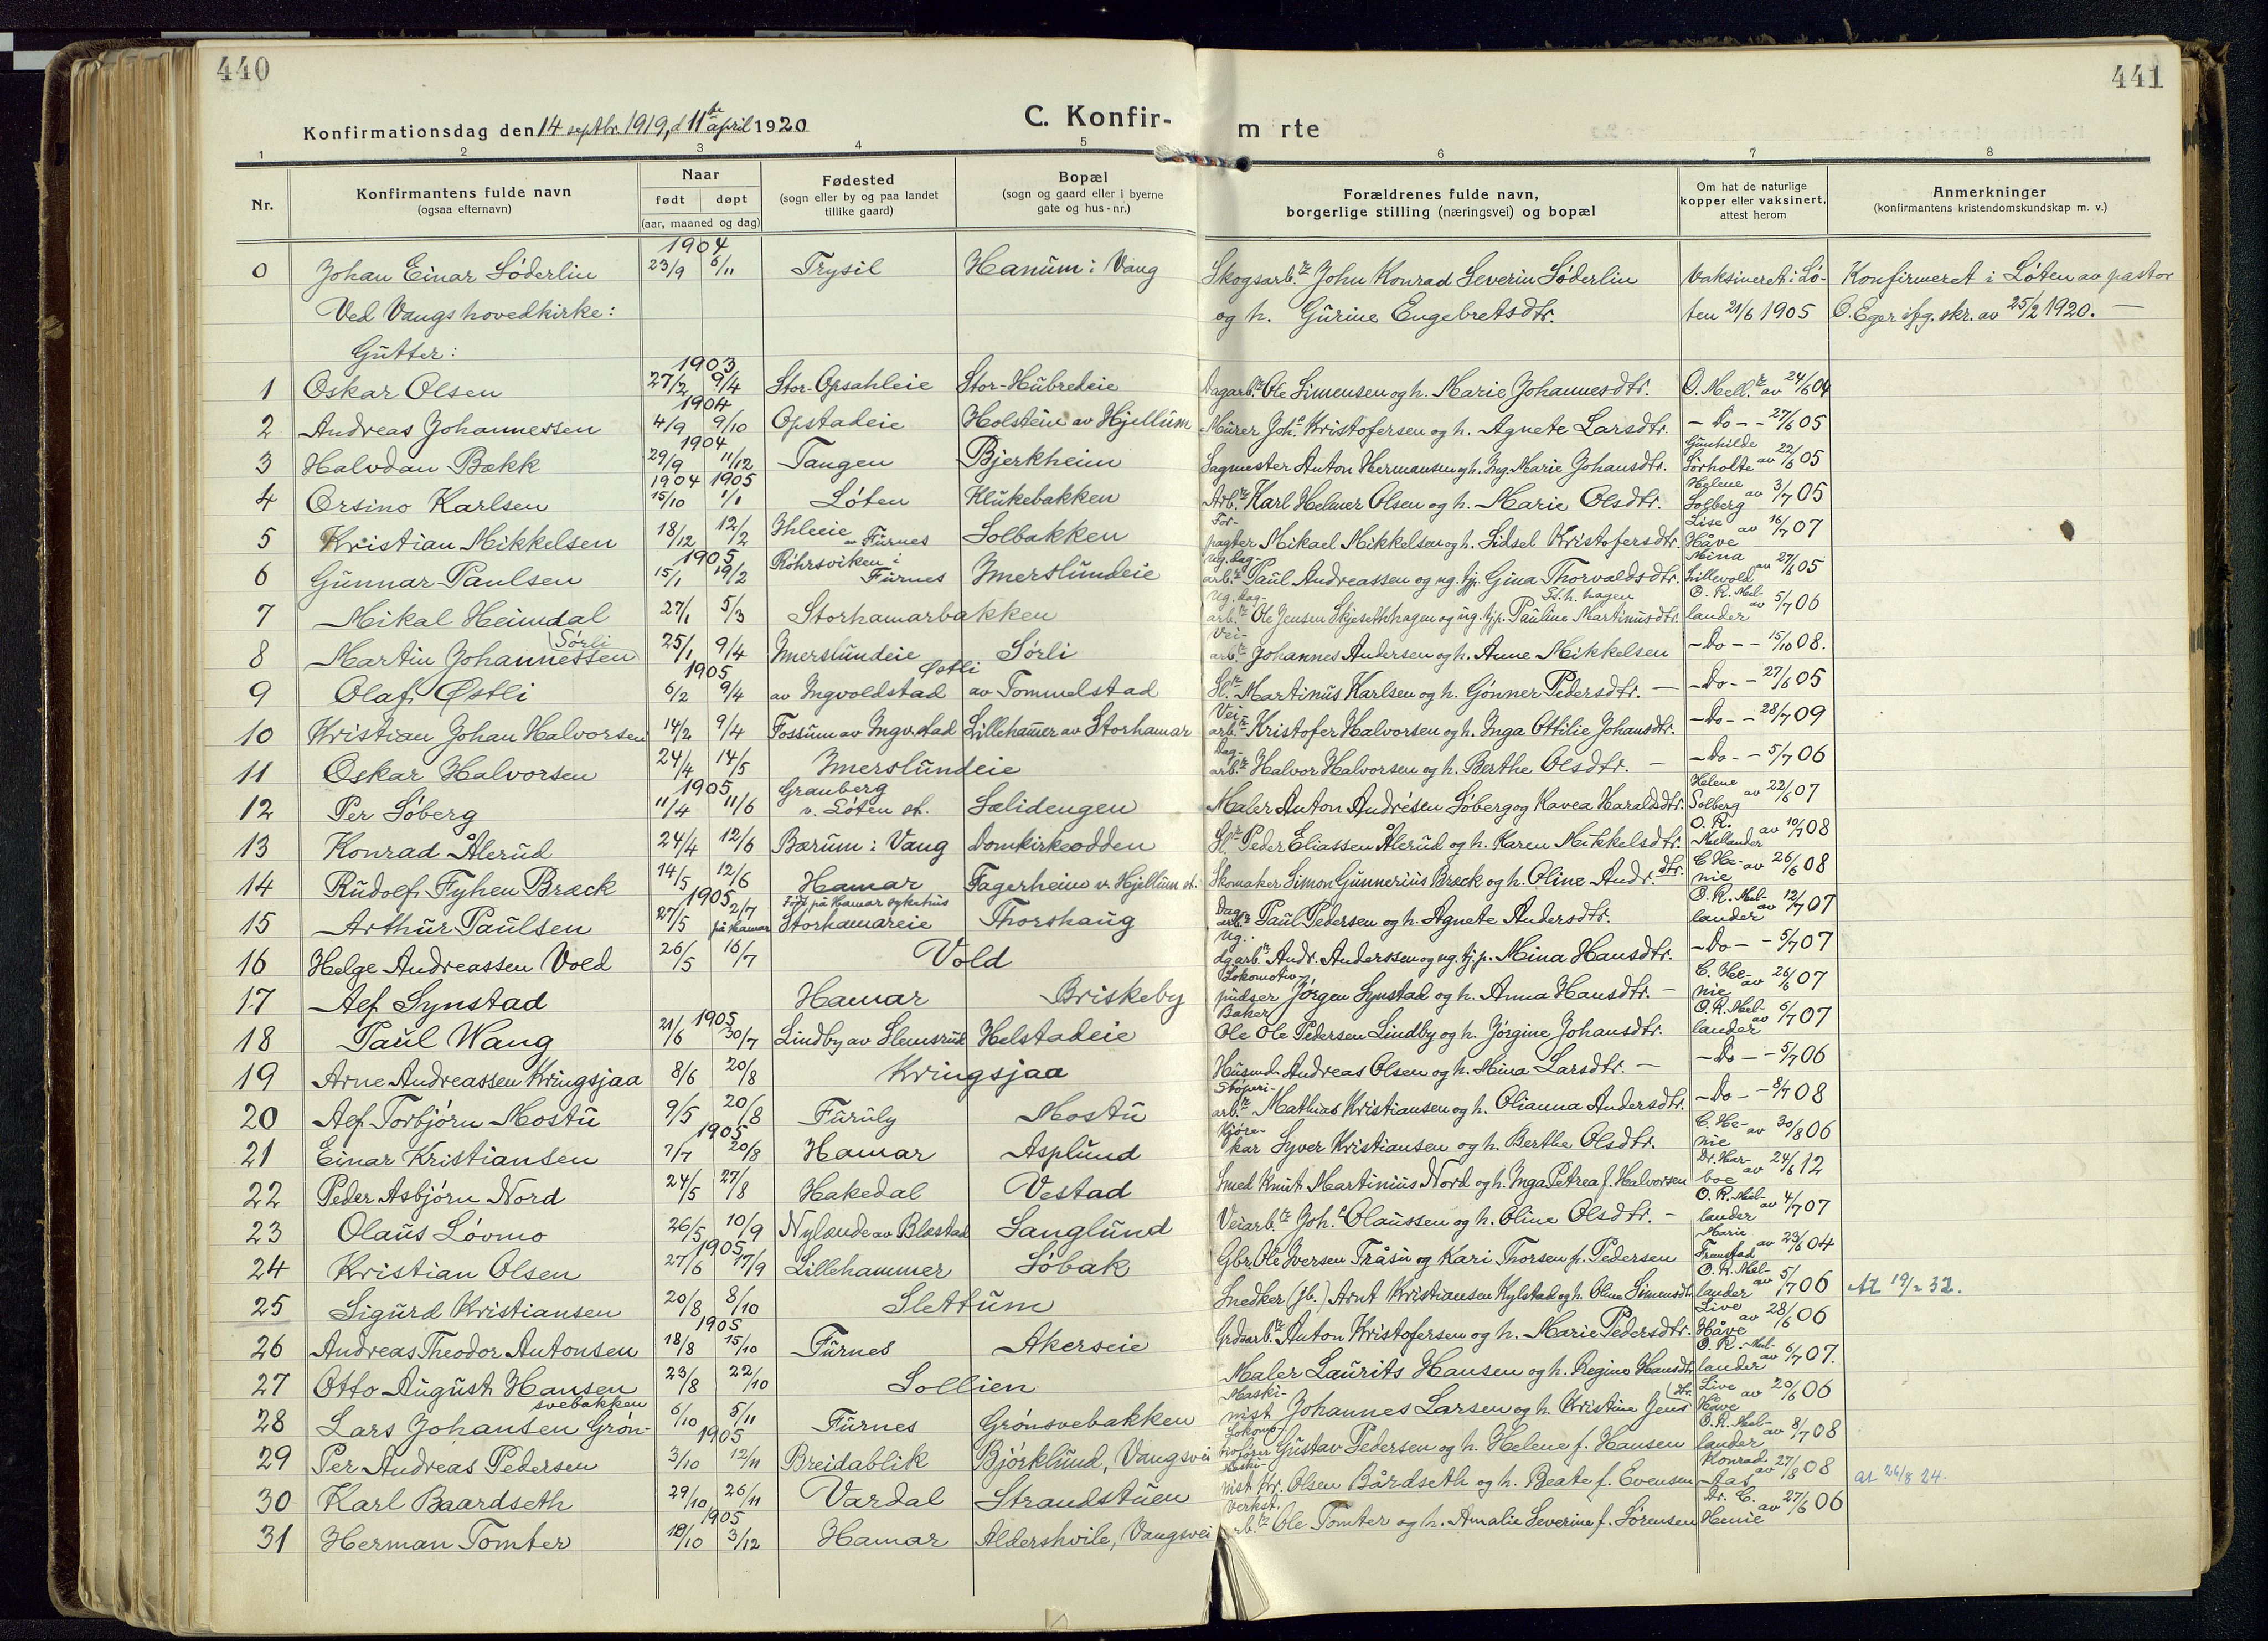 440
441
Konfirmationsdag den 14 septbr. 1919, d 11te april 1920
C. Konfir-
m rte
1 2 3 4 5 6 7 8
Nr.
Konfirmantens fulde navn
(ogsaa efternavn)
Naar
født døpt
(aar, maaned og dag)
Fødested
(sogn eller by og paa landet
tillike gaard)
Bopæl
(sogn og gaard eller i byerne
gate og hus-nr.)
Forældrenes fulde navn,
borgerlige stilling (næringsvei) og bopæl
Om hat de naturlige
kopper eller vaksinert,
attest herom
Anmerkninger
(konfirmantens kristendomskundskap m. v.)
1904
0 Johan Einar Söderlin 23/9 6/11 Trysil Hanum i Vang Skogsarb.r John Konrad Severin Söderlin Vaksineret i Lö- Konfirmeret i Löten av pastor
Ved Vangs hovedkirke: og h. Gurine Engebretsdtr. ten 21/6 1905 O. Eger ifg. skr. av 25/2 1920. —
Gutter:
1903
1 Oskar Olsen 27/2 9/4 Stor-Opsahleie Stor-Hubredeie Dagarb.r Ole Simensen og h. Marie Johannesdtr. O. Mell.r av 24/6 04
1904
2 Andreas Johannessen 4/9 9/10 Opstadeie Holstein av Hjellum Murer Joh.s Kristofersen og h. Agnete Larsdtr. - Do - - 27/6 05
1904
3 Halvdan Bækk 29/9 11/12 Tangen Bjerkheim Sagmester Anton Hermansen og h. Ing. Marie Johansdtr. Gunhilde Sørholte av 22/6 05
1904 1905
4 Orsino Karlsen 15/10 1/1 Löten Klukebakken Arb.r Karl Helmer Olsen og h. Marie Olsdtr. Helene Solberg av 3/7 05
5 Kristian Mikkelsen 18/12 12/2 Ihleie av Furnes Solbakken Forpagter Mikael Mikkelsen og h. Sidsel Kristofersdtr. Lise Håve av 16/7 07
1905
6 Gunnar Paulsen 15/1 19/2 Röhrsviken i Furnes Imerslundeie Ug. dagarb.r Paul Andreassen og ug. tjp. Gina Thorvaldsdtr. Mina Lillevold av 27/6 05
7 Mikal Heimdal 27/1 5/3 Storhamarbakken Ug. dagarb.r Ole Jensen Skjesethhagen og ug. tjp. Pauline Martinusdtr. St.h. hagen O. R. Mellander av 5/7 06
8 Martin Johannessen Sörli 25/1 9/4 Imerslundeie Sörli Veiarb.r Johannes Andersen og h. Anne Mikkelsen - Do - - 15/10 08.
1905
9 Olaf Østli 6/2 9/4 av Ingvoldstad Østli av Tommelstad Sl.r Martinus Karlsen og h. Gönner Pedersdtr. — - Do - - 27/6 05
10 Kristian Johan Halvorsen 14/2 9/4 Fossum av Ingv.stad Lillehamer av Storhamar Veiarb.r Kristofer Halvorsen og h. Inga Ottilie Johansdtr. - Do - - 28/7 09
11 Oskar Halvorsen 24/4 14/5 Imerslundeie Dagarb.r Halvor Halvorsen og h. Berthe Olsdtr. — - Do - - 5/7 06
1905
12 Per Söberg 11/4 11/6 Granberg v. Löten st. Sælidengen Maler Anton Andrésen Söberg og Kavea Haraldsdtr. Helene Solberg av 22/6 07
13 Konrad Ålerud 24/4 12/6 Bærum i Vang Domkirkeodden Sl.r Peder Eliassen Ålerud og h. Karen Mikkelsdtr. O. R. Mellander av 10/7 08
14 Rudolf Fyhen Bræck 14/5 12/6 Hamar Fagerheim v. Hjellum st. Skomaker Simon Gunnerius Bræck og h. Oline Andr.dtr. C. Henie av 26/6 08
1905
15 Arthur Paulsen 27/5 2/7 på Hamar Født på Hamar sykehus Storhamareie Thorshaug Dagarb.r Paul Pedersen og h. Agnete Andersdtr. O. R. Mellander av 12/7 07
16 Helge Andreassen Vold 26/5 16/7 Vold Ug. dgarb.r Andr. Anderssen og ug. tj.p. Mina Hansdtr. - Do - - 5/7 07
17 Alf Synstad Hamar Briskeby Lokomotivpudser Jörgen Synstad og h. Anna Hansdtr. — C. Henie av 26/6 07
1905
18 Paul Wang 21/6 30/7 Lindby av Slemsrud Helstadeie Baker Ole Ole Pedersen Lindby og h. Jörgine Johansdtr. O. R. Mellander av 6/7 07
19 Arne Andreassen Kringsjaa 8/6 20/8 Kringsjaa Husmd. Andreas Olsen og h. Mina Larsdtr. — - Do - - 5/7 06
20 Alf Torbjörn Mostu 9/5 20/8 Furuly Mostu Stöperiarb.r Mathias Kristiansen og h. Olianna Andersdtr. - Do - - 8/7 08
1905
21 Einar Kristiansen 7/7 20/8 Hamar Asplund Kjörekar Syver Kristiansen og h. Berthe Olsdtr. C. Henie av 30/8 06
22 Peder Asbjörn Nord 24/5 27/8 Hakedal Vestad Smed Knut Martinius Nord og h. Inga Petrea f. Halvorsen Dr. Harboe av 24/6 12
23 Olaus Lövmo 26/5 10/9 Nylænde av Blæstad Sanglund Veiarb.r Joh.s Olaussen og h. Oline Olsdtr. — O. R. Mellander av 4/7 07
1905
24 Kristian Olsen 27/6 17/9 Lillehammer Söbak Gbr. Ole Iversen Tråsu og Kari Thorsen f. Pedersen Marie Framstad av 23/6 04
25 Sigurd Kristiansen 20/8 8/10 Slettum Snedker (jb.) Arnt Kristiansen Kylstad og h. Oline Simensdtr. O. R. Mellander av 5/7 06 At 19/2 32.
1905
26 Andreas Theodor Antonsen 18/8 15/10 Furnes Akerseie Grdsarb.r Anton Kristofersen og h. Marie Pedersdtr. Live Håve av 28/6 06
27 Otto August Hansen 23/8 22/10 Sollien Maler Laurits Hansen og h. Regine Hansdtr. O. R. Mellander av 6/7 07.
28 Lars Johansen Grönsvebakken 6/10 5/11 Furnes Grönsvebakken Maskinist Johannes Larsen og h. Kristine Jensdtr. Live Håve av 20/6 06
1905
29 Per Andreas Pedersen 3/10 12/11 Breidablik Björklund, Vangsvei Lokomotivförer Gustav Pedersen og h. Helene f. Hansen O. R. Mellander av 8/7 08
30 Karl Baardseth 29/10 26/11 Vardal Strandstuen Maskinist Kr. Olsen Bårdseth og h. Beate f. Evensen Konrad Aas av 27/8 08 at 26/8 24.
1905
31 Herman Tomter 10/10 3/12 Hamar Aldershvile, Vangsvei Verkst.arb.r Ole Tomter og h. Amalie Severine f. Sörensen Dr. C. Henie av 27/6 06